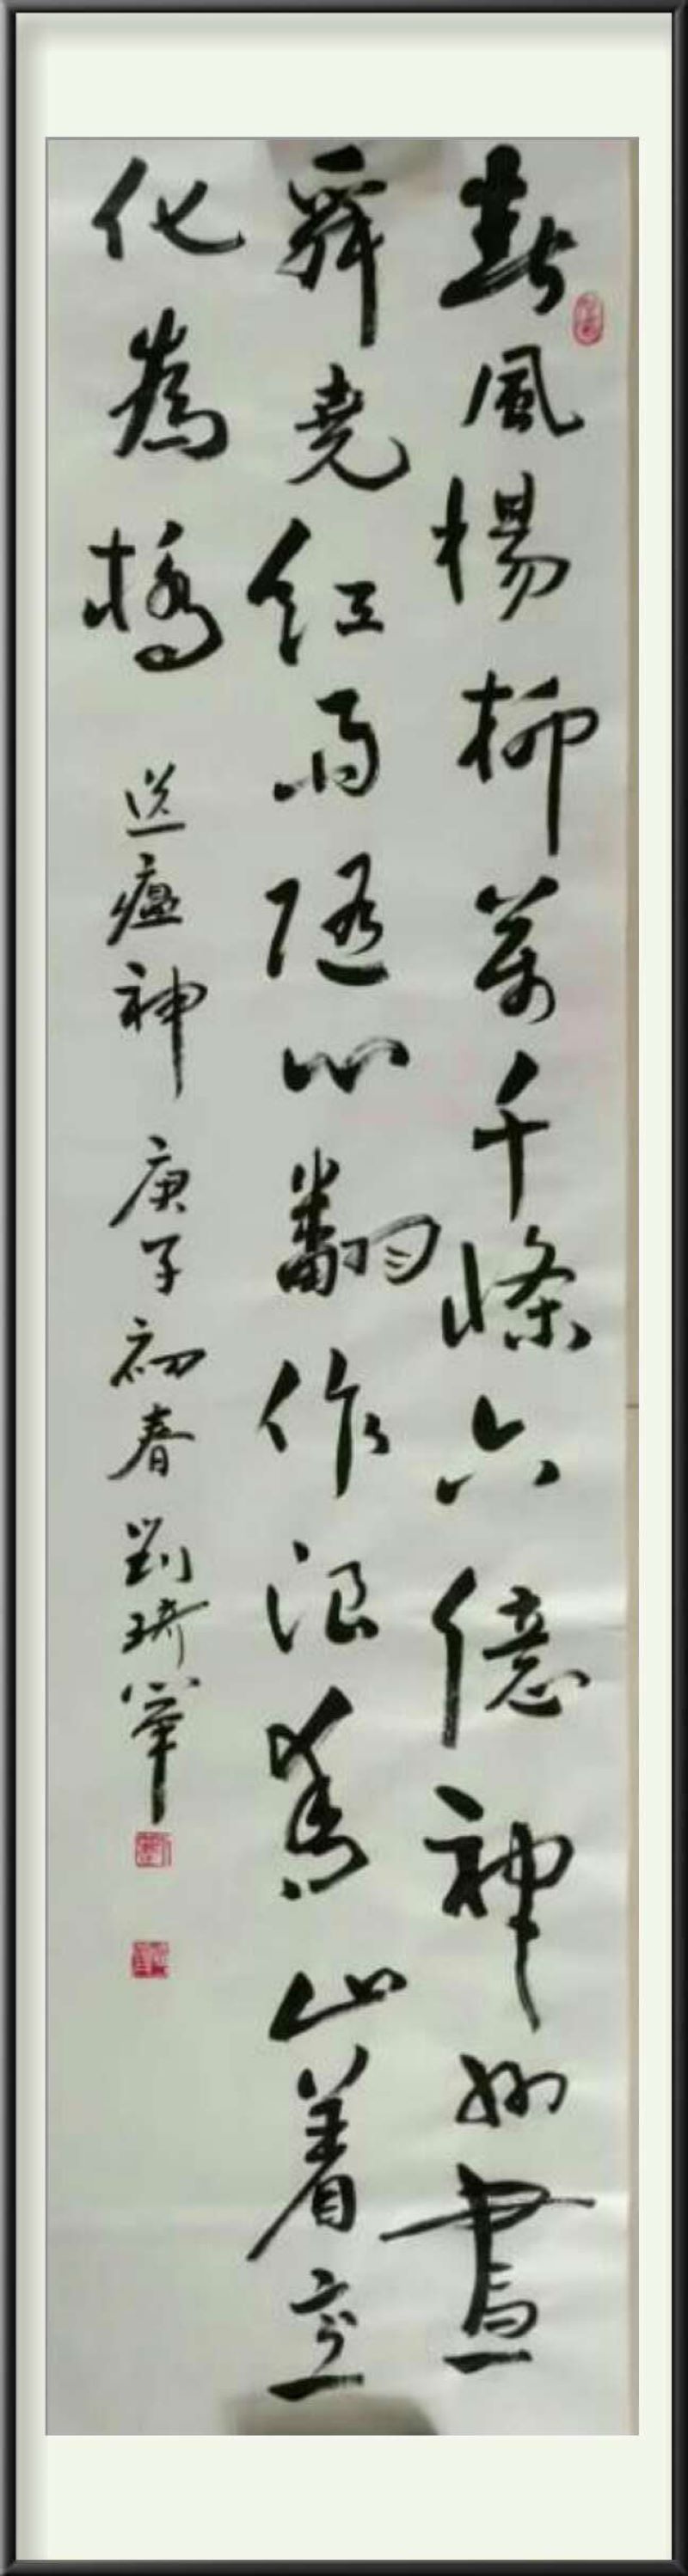 春風楊柳萬千條六億神州盡
舜堯紅雨隨心翻作浪青山着意
化為橋 送瘟神 庚子初春 劉琦